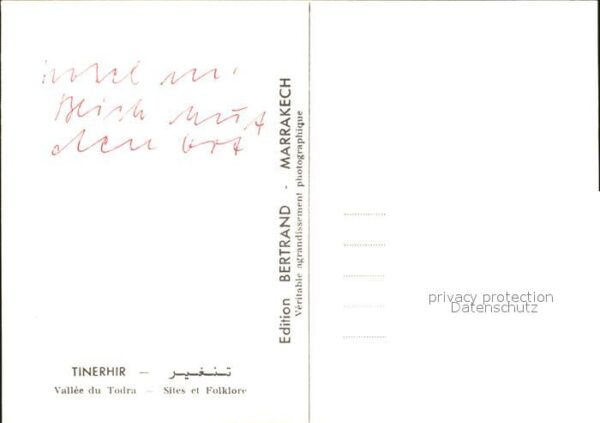 den Ort
Edition BERTRAND - MARRAKECH
Véritable agrandissement photographique
privacy protection
Datenschutz
TINERHIR — تنغير
Vallée du Todra — Sites et Folklore